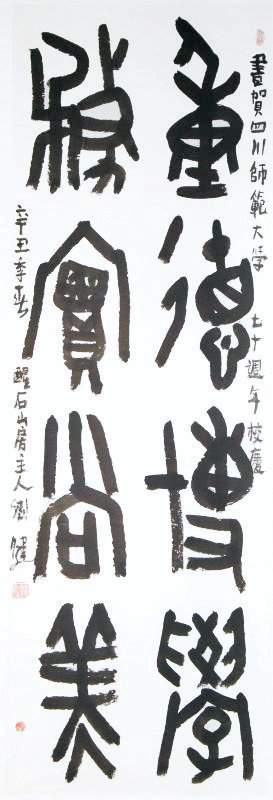 書賀四川師範大学七十週年校慶
重德博學
務實尚美
辛丑季春 醒石山房主人劉健